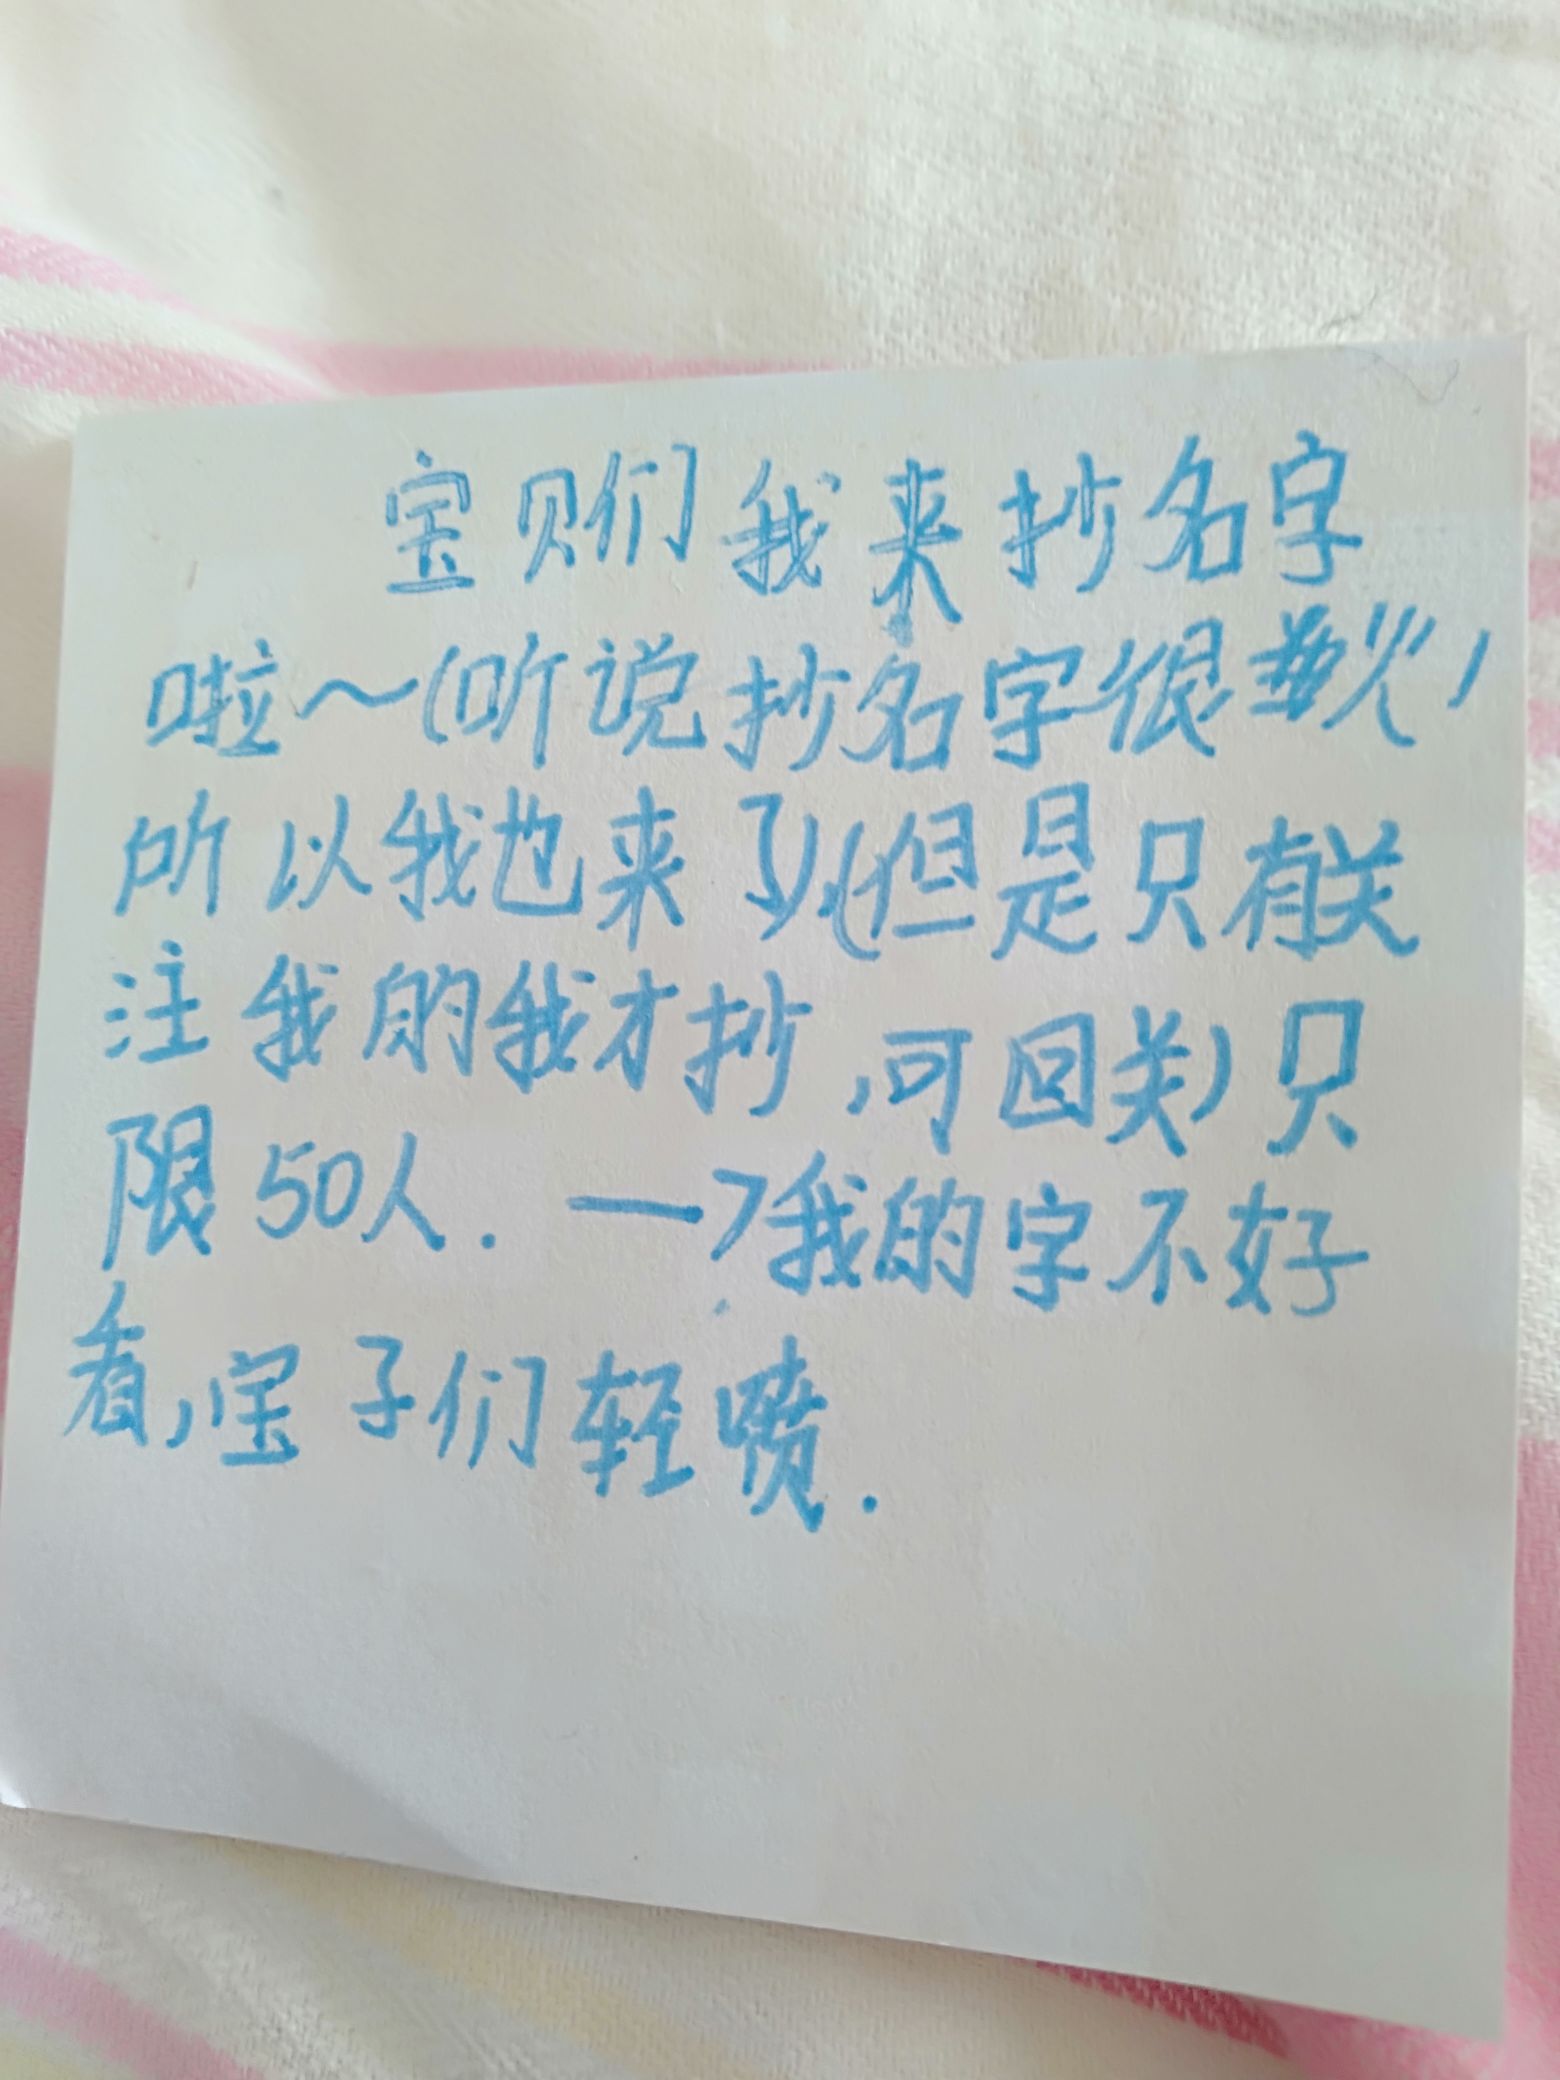 宝贝们我来抄名字
啦～(听说抄名字很火,
所以我也来了).(但是只有关
注我的我才抄,可回关)只
限50人. —>我的字不好
看,宝子们轻喷.